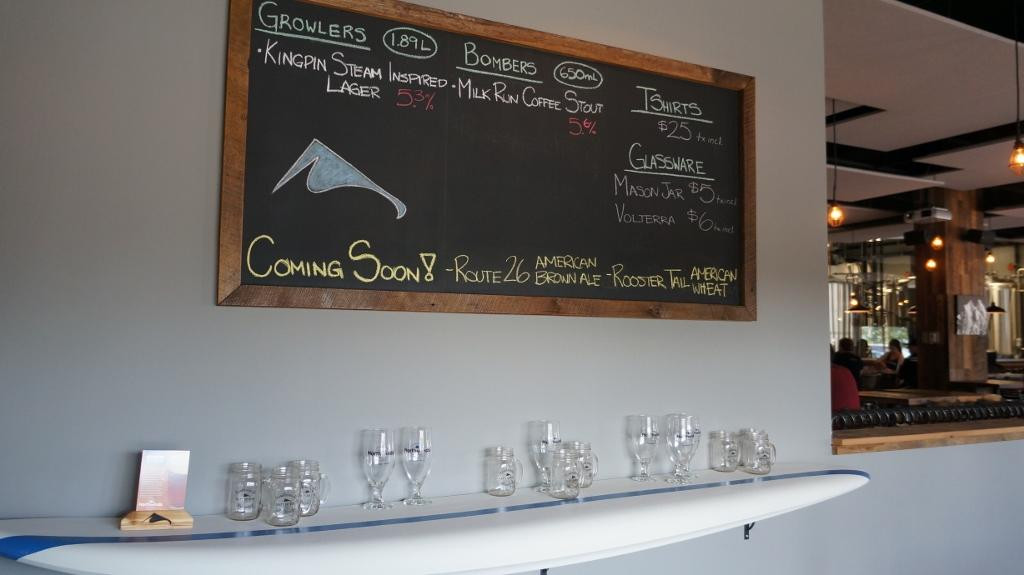 GROWLERS 1.89L
• KINGPIN STEAM INSPIRED
LAGER 5.3%
BOMBERS 650mL
• MILK RUN COFFEE STOUT
5.6%
TSHIRTS
$25 tx incl
GLASSWARE
MASON JAR $5 tx incl
VOLTERRA $6 tx incl
COMING SOON! - ROUTE 26 AMERICAN BROWN ALE - ROOSTER TAIL AMERICAN WHEAT